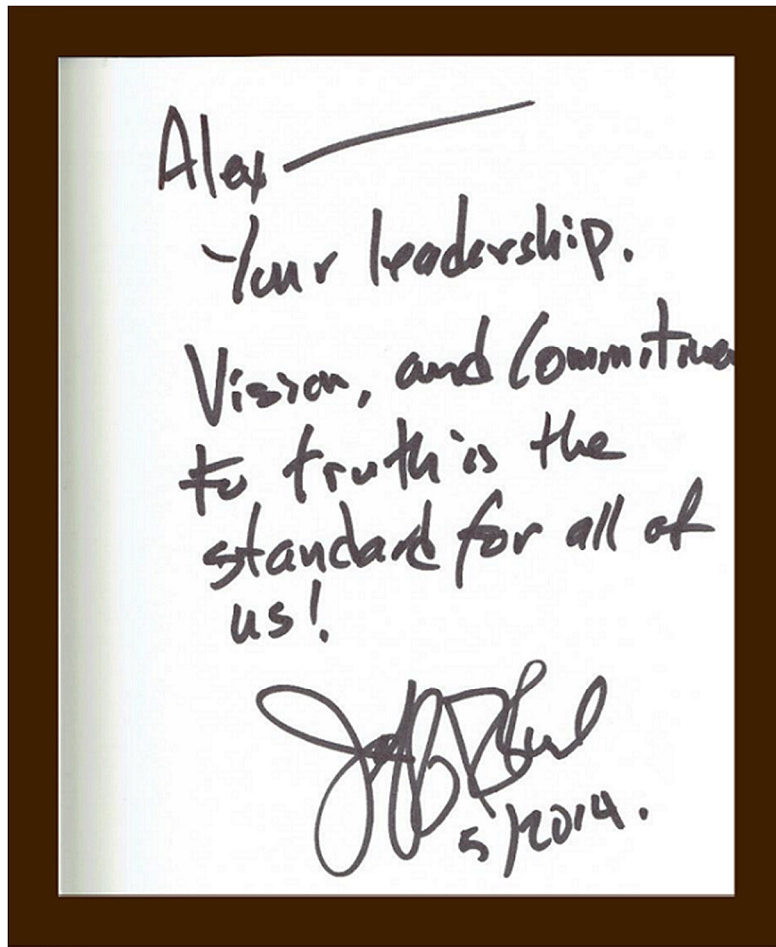 Alex
Your leadership.
Vision, and Commitme
to truth is the
standard for all of
us!
5/2014.